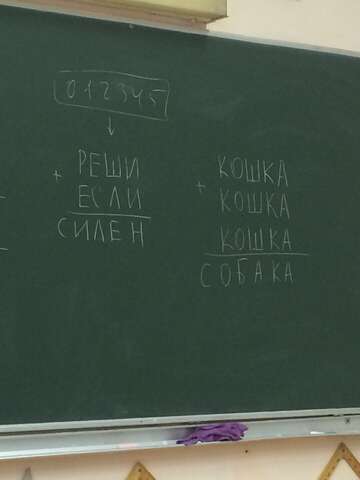 0 1 2 3 4 5
+ РЕШИ
ЕСЛИ
СИЛЕН
+ КОШКА
КОШКА
КОШКА
СОБАКА